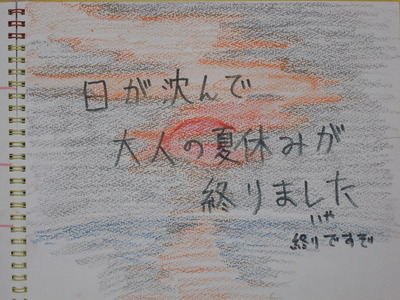 日が沈んで
大人の夏休みが
終りました
いや
終りですぞ